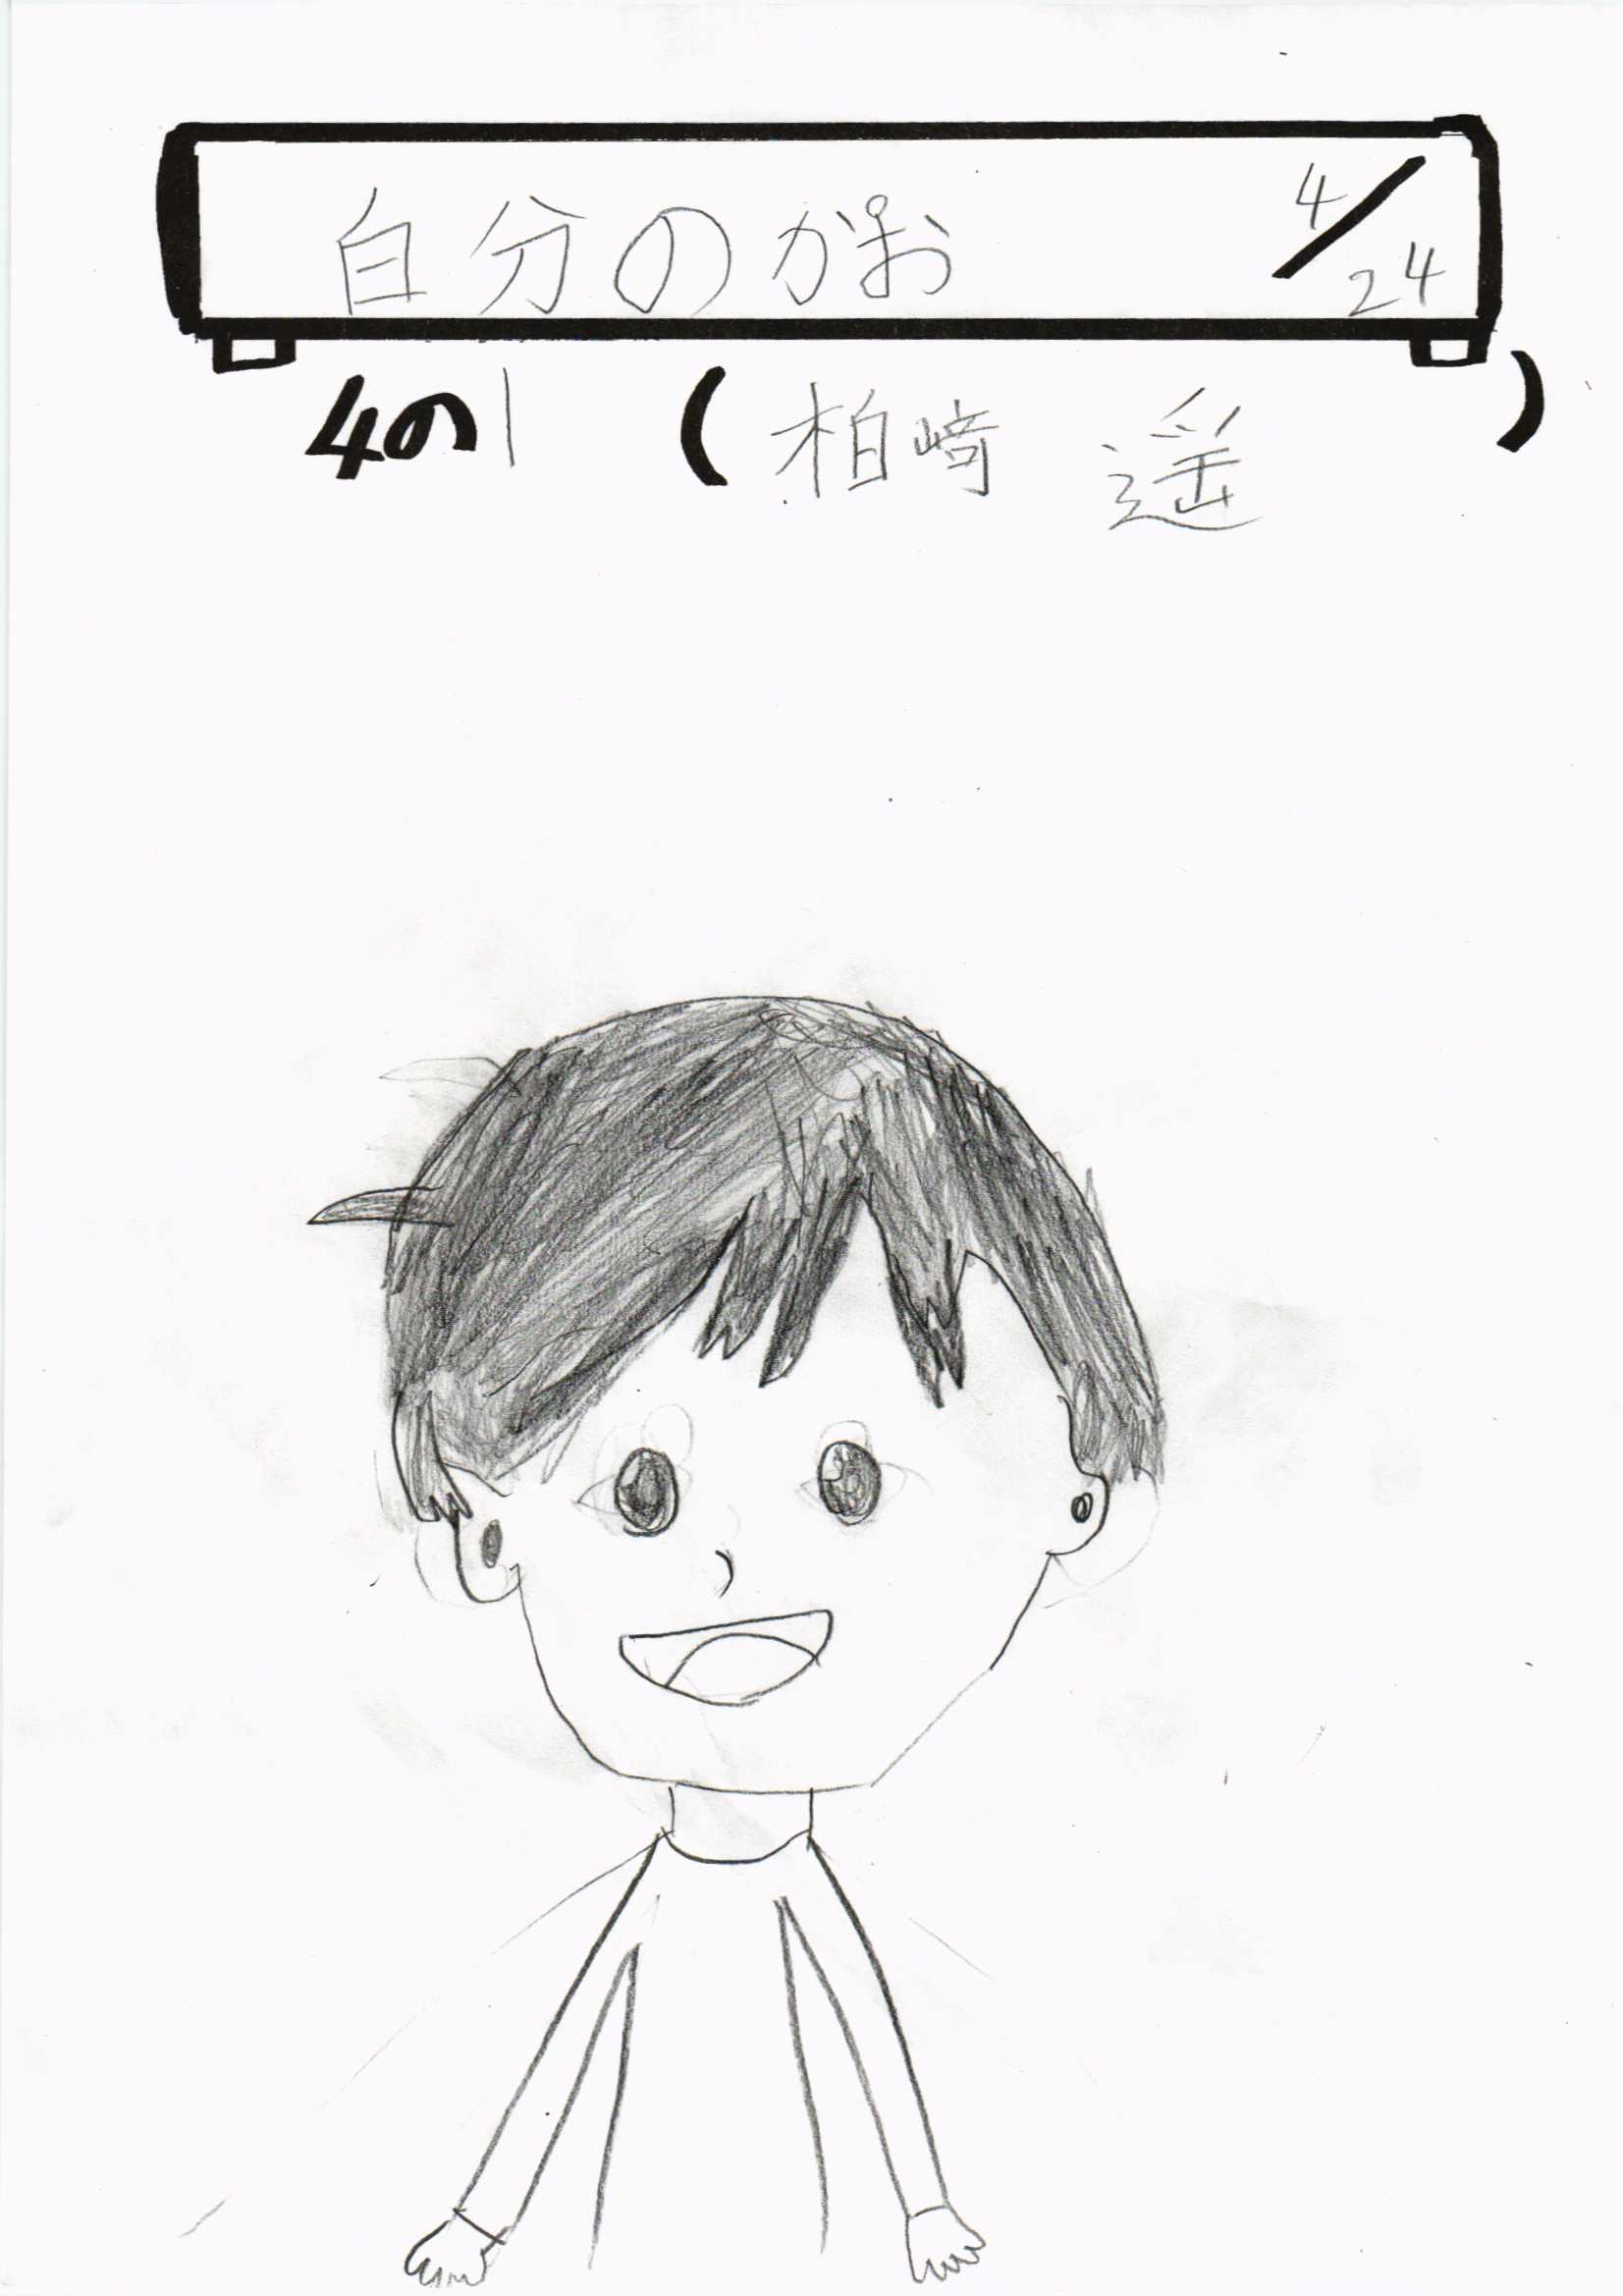 自分のがお 4/24
4の1 (柏﨑 遥)